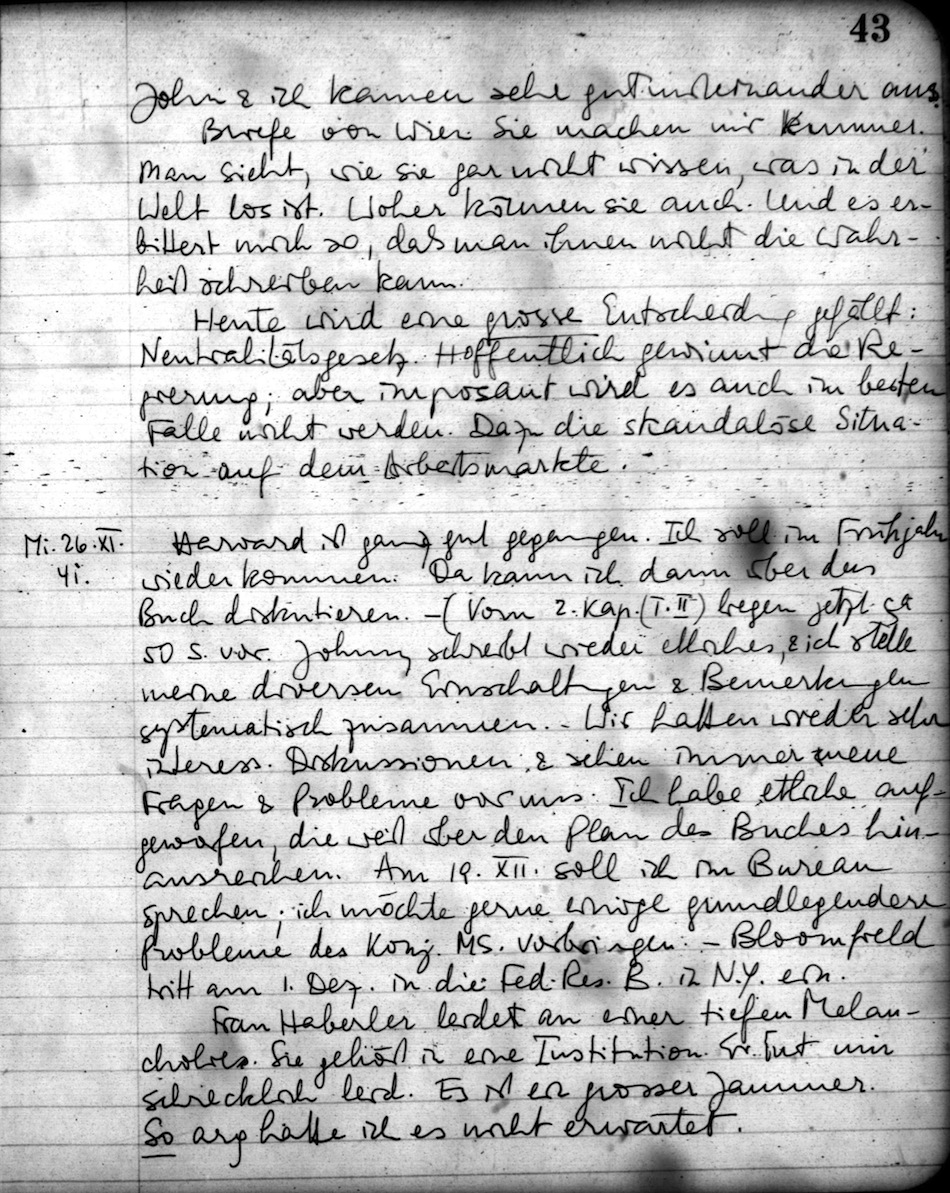 43
John & ich kamen sehr gut miteinander aus.
Briefe von Wien. Sie machen mir Kummer.
Man sieht, wie sie gar nicht wissen, was in der
Welt los ist. Woher können sie auch. Und es er-
bittert mich so, daß man ihnen nicht die Wahr-
heit schreiben kann.
Heute wird eine grosse Entscheidung gefällt:
Neutralitätsgesetz. Hoffentlich gewinnt die Re-
gierung; aber imposant wird es auch im besten
Falle nicht werden. Dazu die skandalöse Situa-
tion auf dem Arbeitsmarkte.
Mi. 26.XI.
41.
Harvard ist ganz gut gegangen. Ich soll im Frühjahr
wiederkommen. Da kann ich dann über den
Buch diskutieren. – (Vom 2. Kap. (T. II) liegen jetzt ca
50 S. vor. Johnny schreibt wieder etliches, & ich stelle
meine diversen Einschaltungen & Bemerkungen
systematisch zusammen. – Wir hatten wieder sehr
interess. Diskussionen & sehen immer neue
Fragen & Probleme vor uns. Ich habe etliche auf-
geworfen, die weit über den Plan des Buches hin-
ausreichen. Am 19. XII. soll ich im Bureau
sprechen; ich möchte gerne einige grundlegendere
Probleme des Konj. MS. vorbringen. – Bloomfield
tritt am 1. Dez. in die Fed. Res. B. in N.Y. ein.
Frau Haberler leidet an einer tiefen Melan-
cholie. Sie gehört in eine Institution. Er tut mir
schrecklich leid. Es ist ein grosser Jammer.
So arg hätte ich es nicht erwartet.